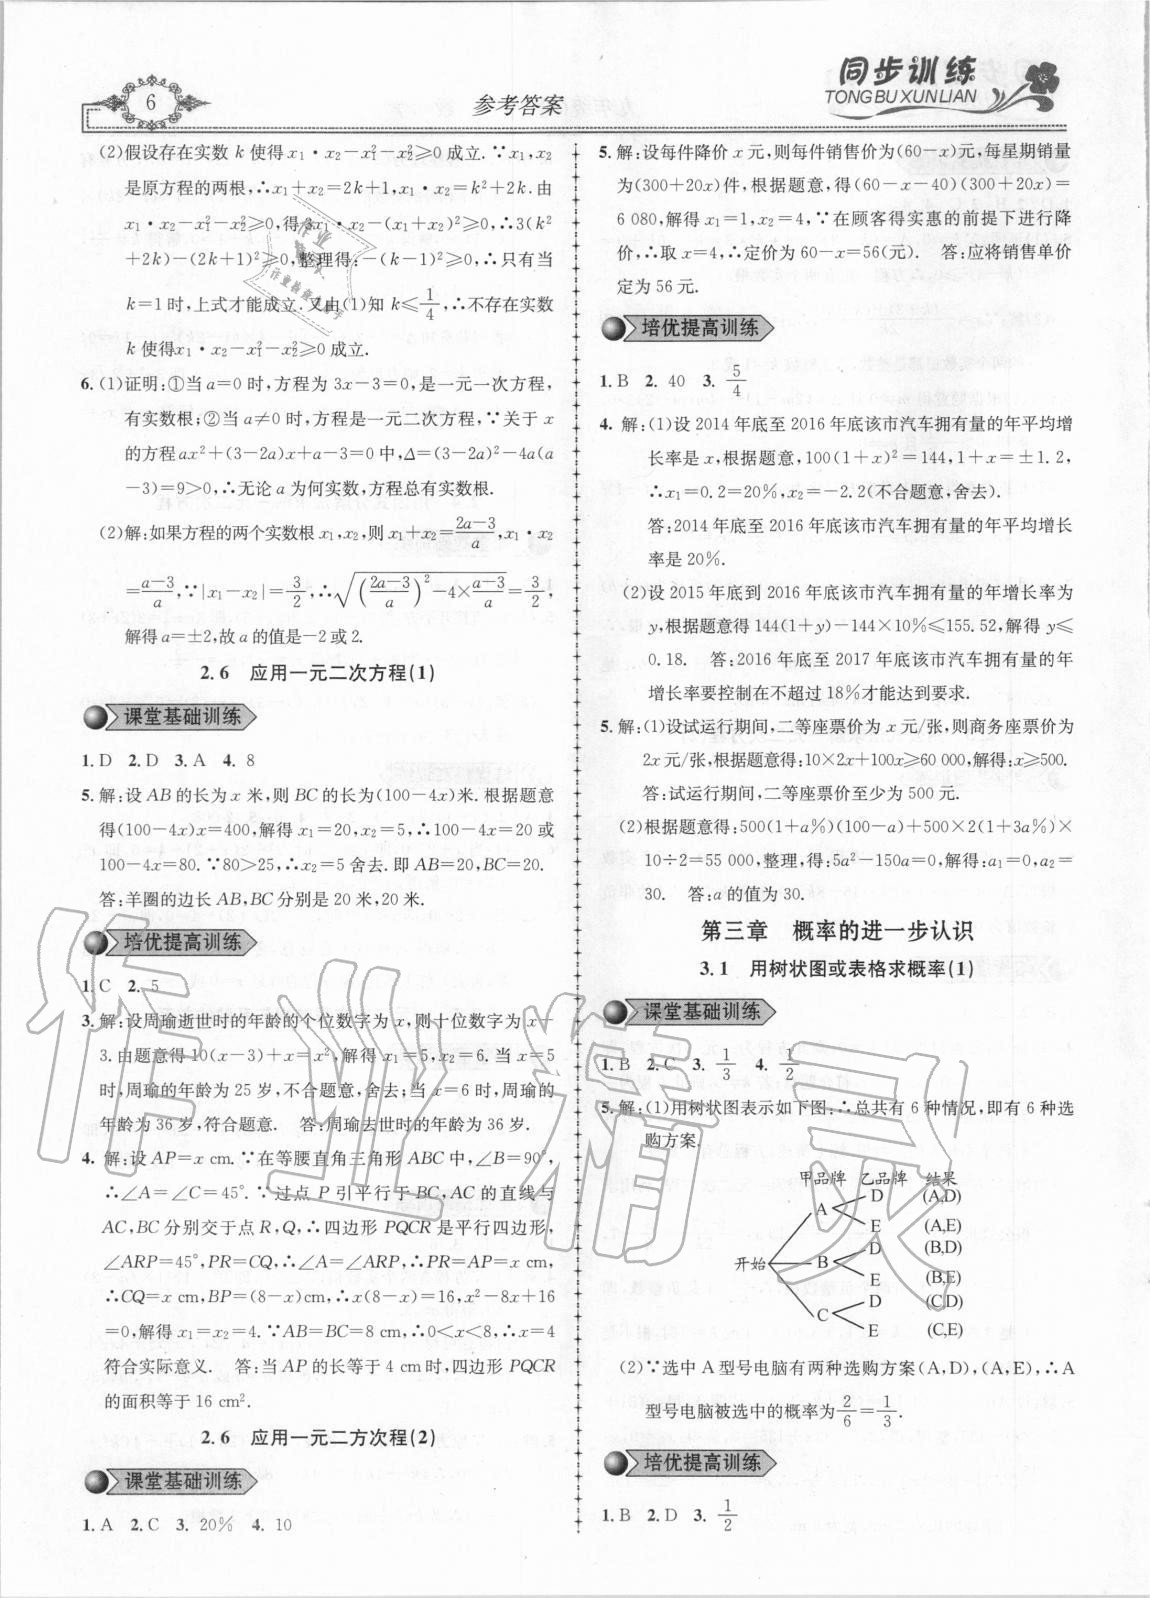 6
参考答案
同步训练
TONGBUXUNLIAN
(2)假设存在实数 k 使得 x₁·x₂－x₁²－x₂²≥0 成立.∵x₁,x₂
是原方程的两根,∴x₁+x₂=2k+1,x₁·x₂=k²+2k.由
x₁·x₂－x₁²－x₂²≥0,得 3x₁·x₂－(x₁+x₂)²≥0,∴3(k²
+2k)－(2k+1)²≥0,整理得:－(k－1)²≥0,∴只有当
k=1时,上式才能成立.又由(1)知 k≤1/4,∴不存在实数
k 使得x₁·x₂－x₁²－x₂²≥0 成立.
6.(1)证明:①当 a=0 时,方程为 3x－3=0,是一元一次方程,
有实数根;②当 a≠0 时,方程是一元二次方程,∵关于 x
的方程 ax²+(3－2a)x+a－3=0 中,Δ=(3－2a)²－4a(a
－3)=9>0,∴无论 a 为何实数,方程总有实数根.
(2)解:如果方程的两个实数根 x₁,x₂,则 x₁+x₂=(2a－3)/a,x₁·x₂
=(a－3)/a,∵|x₁－x₂|=3/2,∴√(((2a－3)/a)²－4×(a－3)/a)=3/2,
解得 a=±2,故 a 的值是－2 或 2.
2.6 应用一元二次方程(1)
课堂基础训练
1.D 2.D 3.A 4. 8
5.解:设 AB 的长为 x 米,则 BC 的长为(100－4x)米.根据题意
得(100－4x)x=400,解得 x₁=20,x₂=5,∴100－4x=20 或
100－4x=80.∵80>25,∴x₂=5 舍去.即 AB=20,BC=20.
答:羊圈的边长 AB,BC 分别是 20 米,20 米.
培优提高训练
1.C 2.5
3.解:设周瑜逝世时的年龄的个位数字为 x,则十位数字为 x－
3.由题意得 10(x－3)+x=x²,解得 x₁=5,x₂=6.当 x=5
时,周瑜的年龄为 25 岁,不合题意,舍去;当 x=6 时,周瑜的
年龄为 36 岁,符合题意. 答:周瑜去世时的年龄为 36 岁.
4.解:设 AP=x cm.∵在等腰直角三角形 ABC 中,∠B=90°,
∴∠A=∠C=45°.∵过点 P 引平行于 BC,AC 的直线与
AC,BC 分别交于点 R,Q,∴四边形 PQCR 是平行四边形,
∠ARP=45°,PR=CQ,∴∠A=∠ARP,∴PR=AP=x cm,
∴CQ=x cm,BP=(8－x)cm,∴x(8－x)=16,x²－8x+16
=0,解得 x₁=x₂=4.∵AB=BC=8 cm,∴0<x<8,∴x=4
符合实际意义. 答:当 AP 的长等于 4 cm时,四边形 PQCR
的面积等于 16 cm².
2.6 应用一元二方次程(2)
课堂基础训练
1.A 2.C 3. 20% 4. 10
5.解:设每件降价 x 元,则每件销售价为(60－x)元,每星期销
量为(300+20x)件,根据题意,得(60－x－40)(300+20x)=
6 080,解得 x₁=1,x₂=4,∵在顾客得实惠的前提下进行降
价,∴取 x=4,∴定价为 60－x=56(元). 答:应将销售单价
定为 56 元.
培优提高训练
1.B 2. 40 3. 5/4
4.解:(1)设 2014 年底至 2016 年底该市汽车拥有量的年平均增
长率是 x,根据题意,100(1+x)²=144,1+x=±1.2,
∴x₁=0.2=20%,x₂=－2.2(不合题意,舍去).
答:2014 年底至 2016 年底该市汽车拥有量的年平均增长
率是 20%.
(2)设 2015 年底到 2016 年底该市汽车拥有量的年增长率为
y,根据题意得 144(1+y)－144×10%≤155.52,解得 y≤
0.18. 答:2016 年底至 2017 年底该市汽车拥有量的年
增长率要控制在不超过 18%才能达到要求.
5.解:(1)设试运行期间,二等座票价为 x 元/张,则商务座票价为
2x 元/张,根据题意得:10×2x+100x≥60 000,解得:x≥500.
答:试运行期间,二等座票价至少为 500 元.
(2)根据题意得:500(1+a%)(100－a)+500×2(1+3a%)×
10÷2=55 000,整理,得:5a²－150a=0,解得:a₁=0,a₂=
30. 答:a 的值为 30.
第三章 概率的进一步认识
3.1 用树状图或表格求概率(1)
课堂基础训练
1.B 2.C 3. 1/3 4. 1/2
5.解:(1)用树状图表示如下图:∴总共有 6 种情况,即有 6 种选
购方案.
甲品牌 乙品牌 结果
开始
A D (A,D)
E (A,E)
B D (B,D)
E (B,E)
C D (C,D)
E (C,E)
(2)∵选中 A 型号电脑有两种选购方案(A,D),(A,E),∴A
型号电脑被选中的概率为 2/6=1/3.
培优提高训练
1.B 2.D 3. 1/2
作业精灵